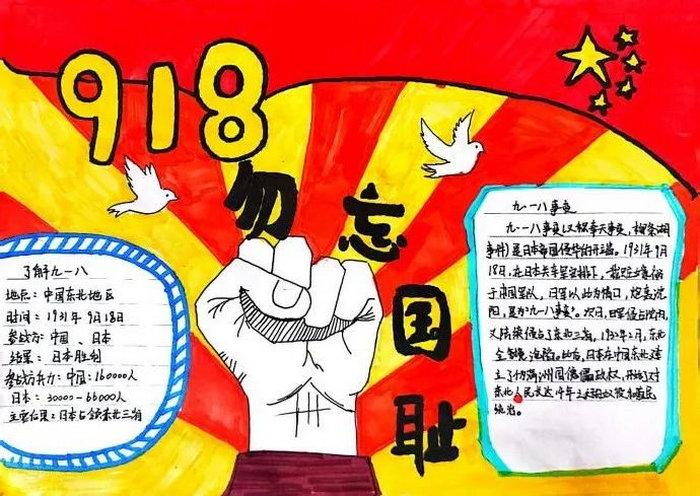 918
勿
忘
国
耻
了解九一八
地点：中国东北地区
时间：1931年9月18日
参战方：中国、日本
结果：日本胜利
参战方兵力：中国：160000人
日本：30000-66000人
主要后果：日本占领东北三省
九一八事变
九一八事变(又称奉天事变，柳条湖
事件)是日本帝国侵华的开端。1931年9月
18日，在日本关东军安排下，
于中国军队，日军以此为借口，炮轰沈
阳，是为"九一八事变"。次日，日军侵占沈阳，
又陆续侵占了东北三省，1932年2月，东北
全境沦陷。此后，日本在中国东北建
立了伪满洲国傀儡政权，开始了对
东北人民长达14年之
统治。